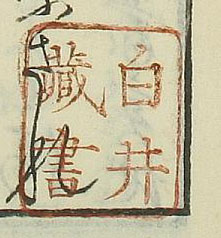 白井
藏書